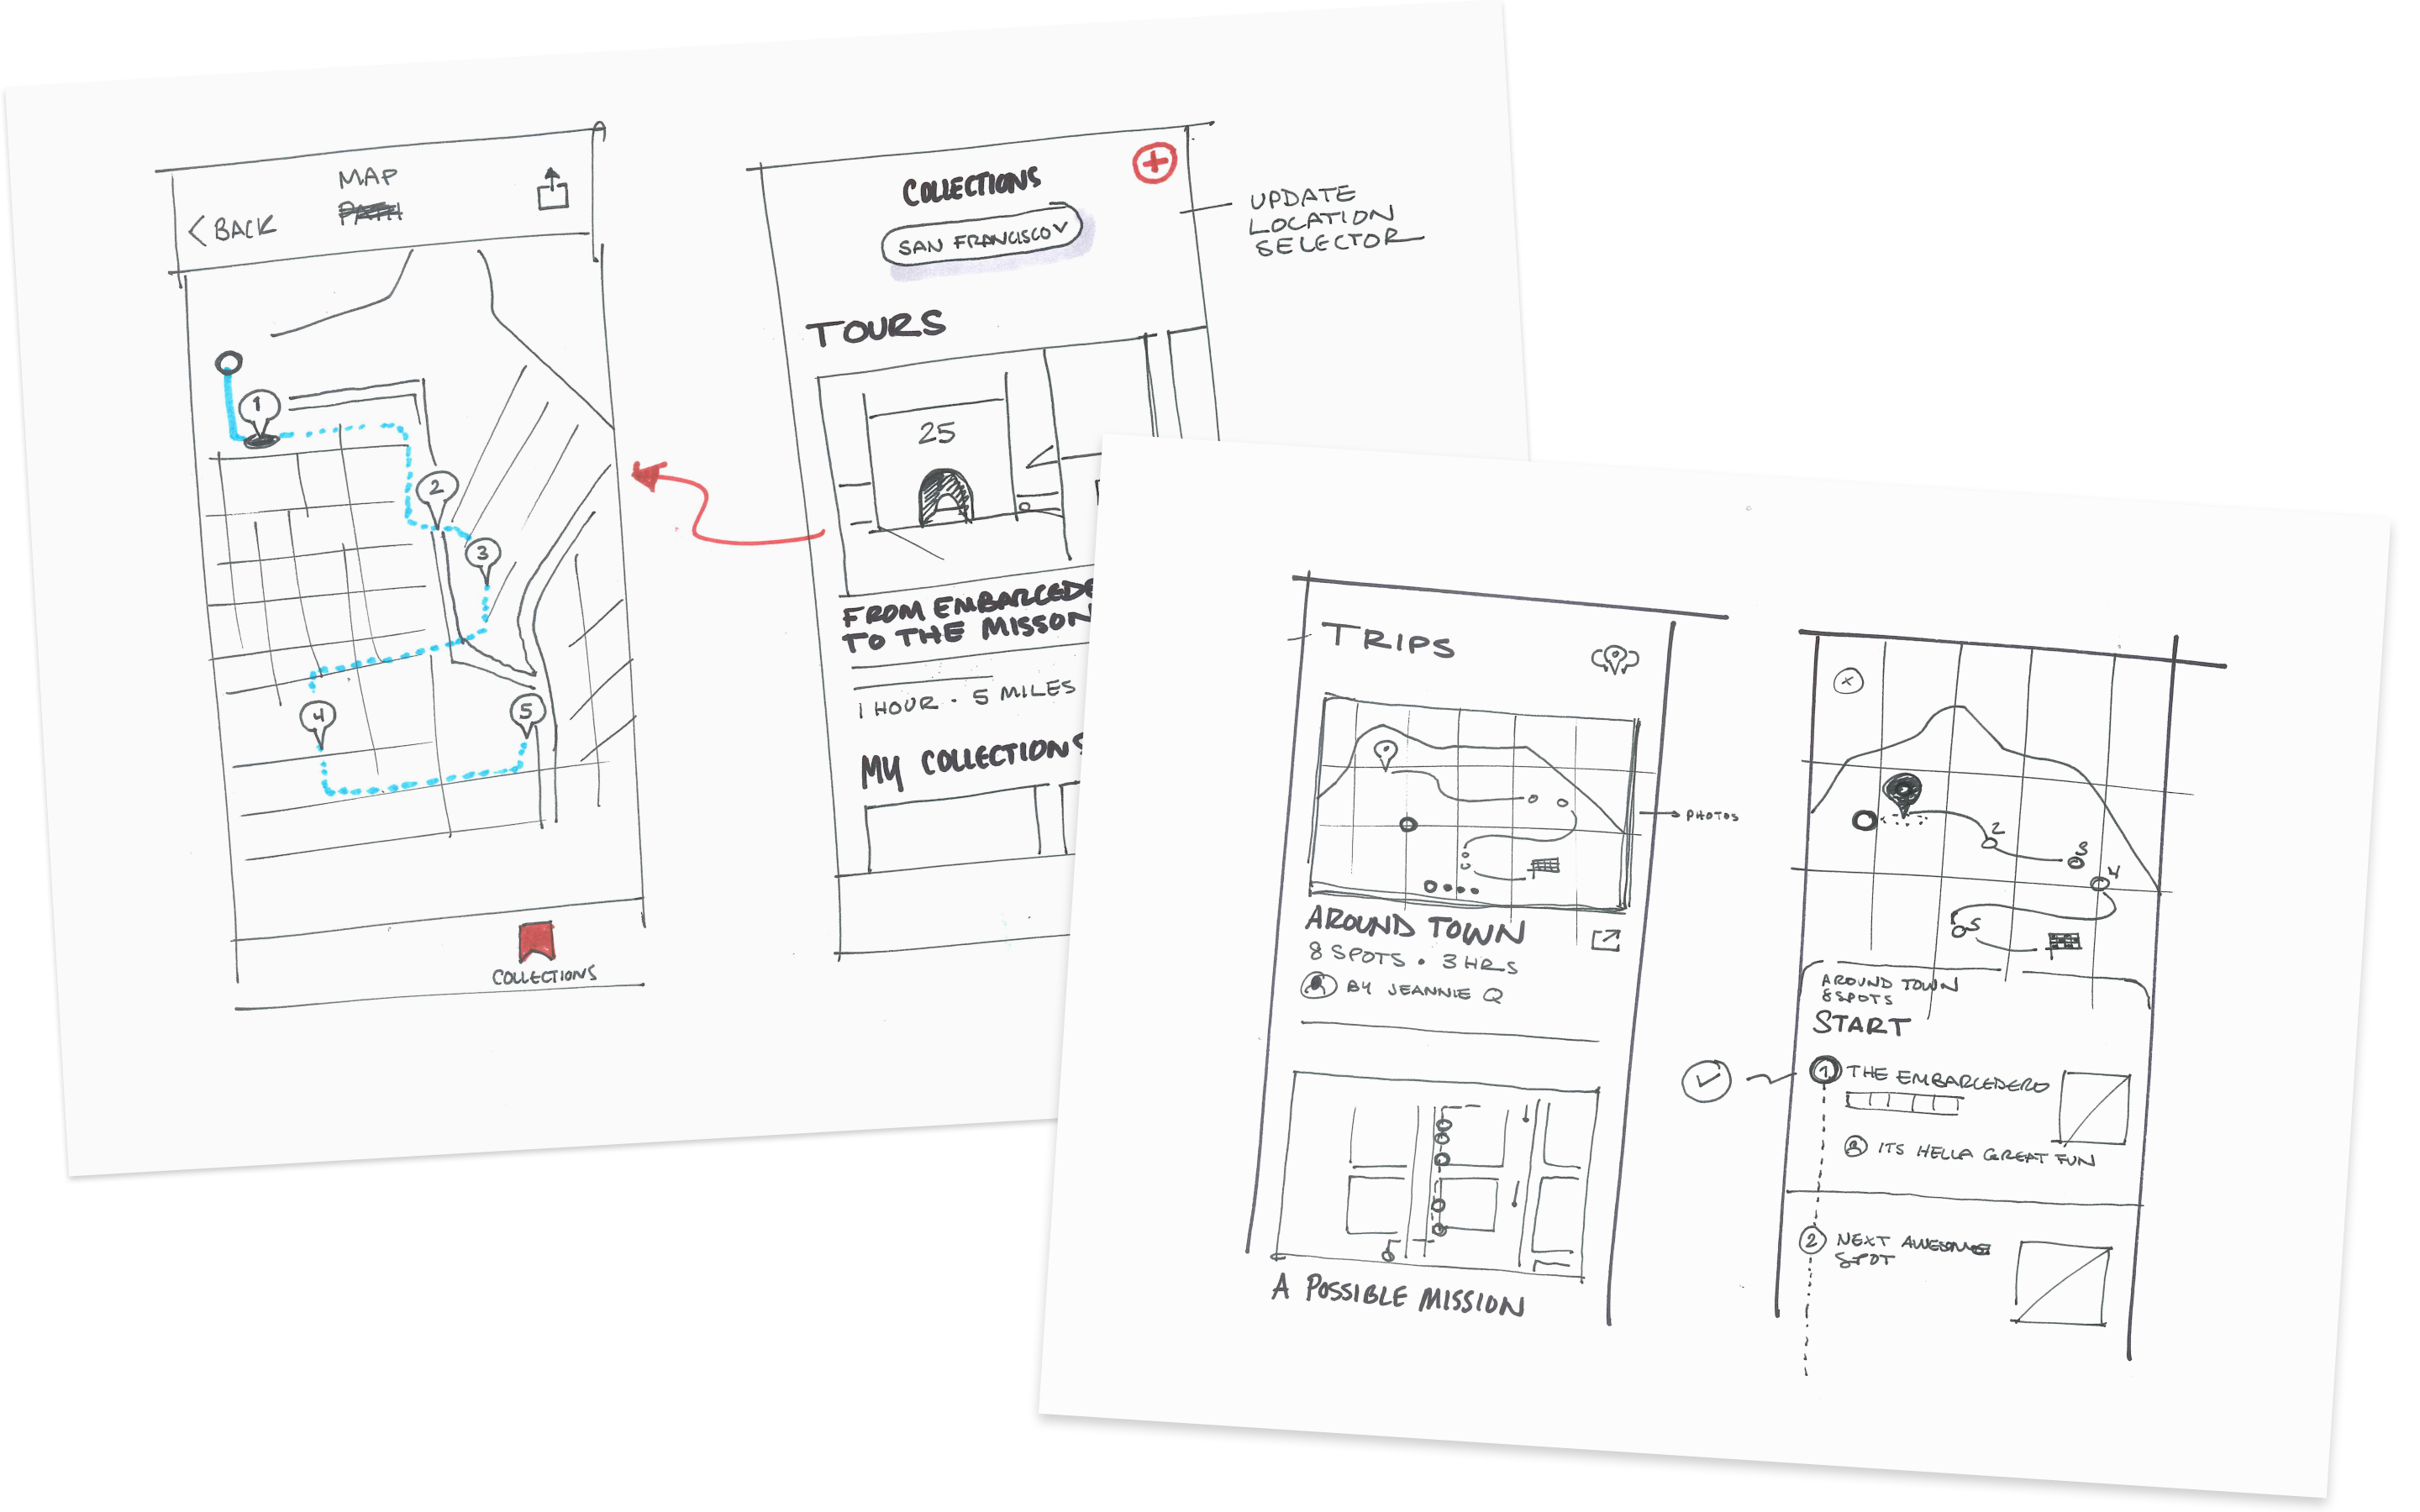 MAP
PATH
< BACK
1
2
3
4
5
COLLECTIONS
COLLECTIONS
SAN FRANCISCO
UPDATE
LOCATION
SELECTOR
TOURS
25
FROM EMBARCEDE
TO THE MISSON
1 HOUR · 5 MILES
MY COLLECTIONS
TRIPS
PHOTOS
AROUND TOWN
8 SPOTS • 3 HRS
BY JEANNIE Q
A POSSIBLE MISSION
X
2
3
4
5
AROUND TOWN
8 SPOTS
START
1 THE EMBARCEDERO
ITS HELLA GREAT FUN
2 NEXT AWESOME
SPOT